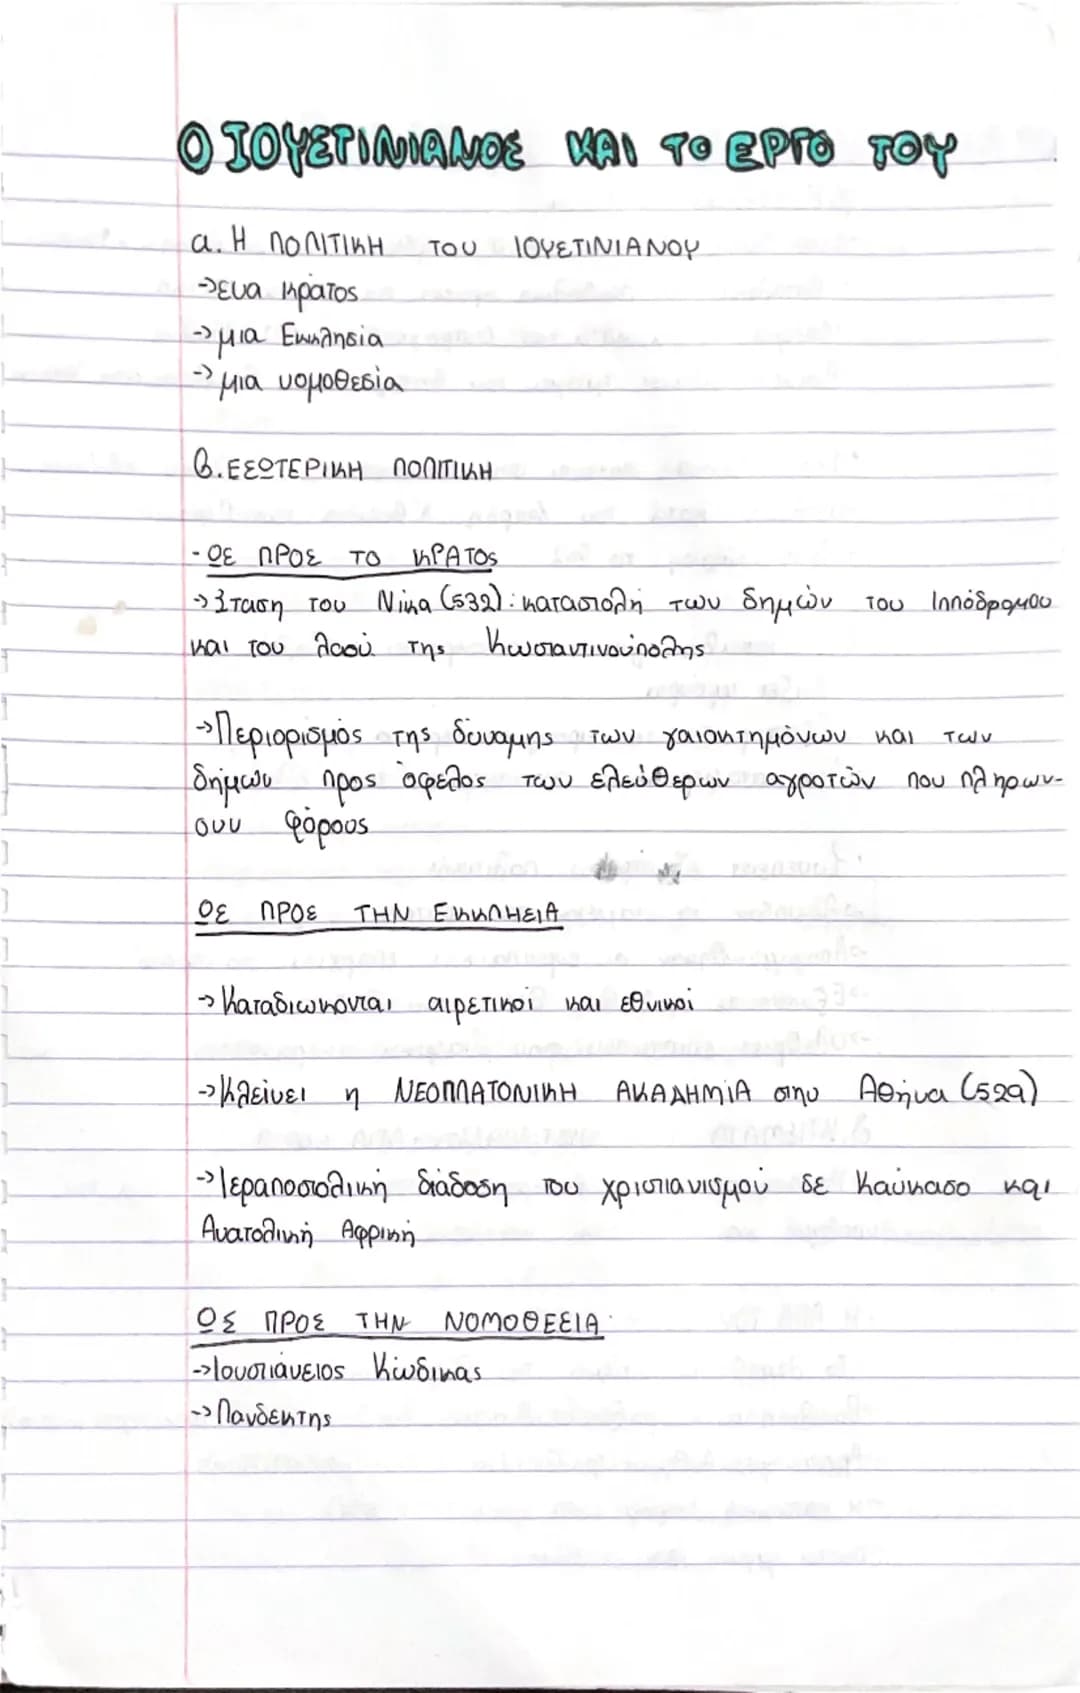 Ο ΙΟΥΣΤΙΝΙΑΝΟΣ ΚΑΙ ΤΟ ΕΡΓΟ ΤΟΥ
α. Η ΠΟΛΙΤΙΚΗ ΤΟΥ ΙΟΥΣΤΙΝΙΑΝΟΥ
→ενα κρατος
→μια Εκκλησία
→μια νομοθεσία
β. ΕΣΩΤΕΡΙΚΗ ΠΟΛΙΤΙΚΗ
- ΩΣ ΠΡΟΣ ΤΟ ΚΡΑΤΟΣ
→Στάση του Νίκα (532): καταστολή των δημών του Ιππόδρομου
και του λαού της Κωσταντινούπολης
→Περιορισμός της δύναμης των γαιοκτημόνων και των
δήμων προς όφελος των ελεύθερων αγροτών που πληρων-
ουν φόρους
ΩΣ ΠΡΟΣ ΤΗΝ ΕΚΚΛΗΣΙΑ
→Καταδιωκονται αιρετικοί και εθνικοί
→Κλείνει η ΝΕΟΠΛΑΤΟΝΙΚΗ ΑΚΑΔΗΜΙΑ στην Αθήνα (529)
→Ιεραποστολική διάδοση του χριστιανισμού σε Καύκασο και
Ανατολική Αφρική
ΩΣ ΠΡΟΣ ΤΗΝ ΝΟΜΟΘΕΣΙΑ
→Ιουστιάνειος Κώδικας
→Πανδεκτης